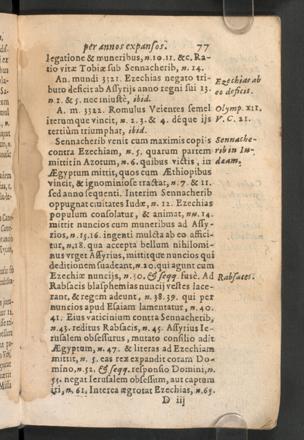 per annos expansos. 77
legatione & muneribus, n. 10. 11. &c. Ra-
tio vitæ Tobiæ sub Sennacherib, n. 14.
An. mundi 3321. Ezechias negato tri-
buto deficit ab Assyrijs anno regni sui 13.
n 2. & 5. nec iniustè, ibid.
Ezechias ab
eo deficit.
A. m. 3322. Romulus Veientes semel
iterumque vincit, n. 2. 3. & 4. déque ijs
tertiùm triumphat, ibid.
Olymp. XII.
V. C. 21.
Sennacherib venit cum maximis copijs
contra Ezechiam, n. 5. quarum partem
mittit in Azotum, n. 6. quibus victis, in
Ægyptum mittit, quos cum Æthiopibus
vincit, & ignominiosè tractat, n. 7. & 11.
sed anno sequenti. Interim Sennacherib
oppugnat ciuitates Iudæ, n. 12. Ezechias
populum consolatur, & animat, nn. 14.
mittit nuncios cum muneribus ad Assy-
rios, n. 15. 16. ingenti mulcta ab eo affici-
tur, n. 18. qua accepta bellum nihilomi-
nus vrget Assyrius, mittitque nuncios qui
deditionem suadeant, n. 20. qui agunt cum
Ezechiæ nuncijs, n. 30. & seqq. sæuè. Ad
Rabsacis blasphemias nuncij vestes lace-
rant, & regem adeunt, n. 38. 39. qui per
nuncios apud Esaiam lamentatur, n. 40.
41. Eius vaticinium contra Sennacherib,
n. 43. reditus Rabsacis, n. 45. Assyrius Ie-
rusalem obsessurus, mutato consilio adit
Ægyptum, n. 47. & literas ad Ezechiam
mittit, n. 5. eas rex expandit coram Do-
mino, n. 52. & seqq. responsio Domini, n.
55. negat Ierusalem obsessum, aut captum
iri, n. 61. Interea ægrotat Ezechias, n. 65.
Sennache-
rib in Iu-
dæam.
Rabsaces.
D iij